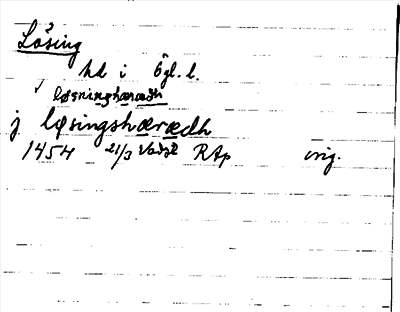 Lösing
hd i Ögl. l.
løsningshærædh
j løsingshærædh
1454 21/3 Vadst RAp orig.